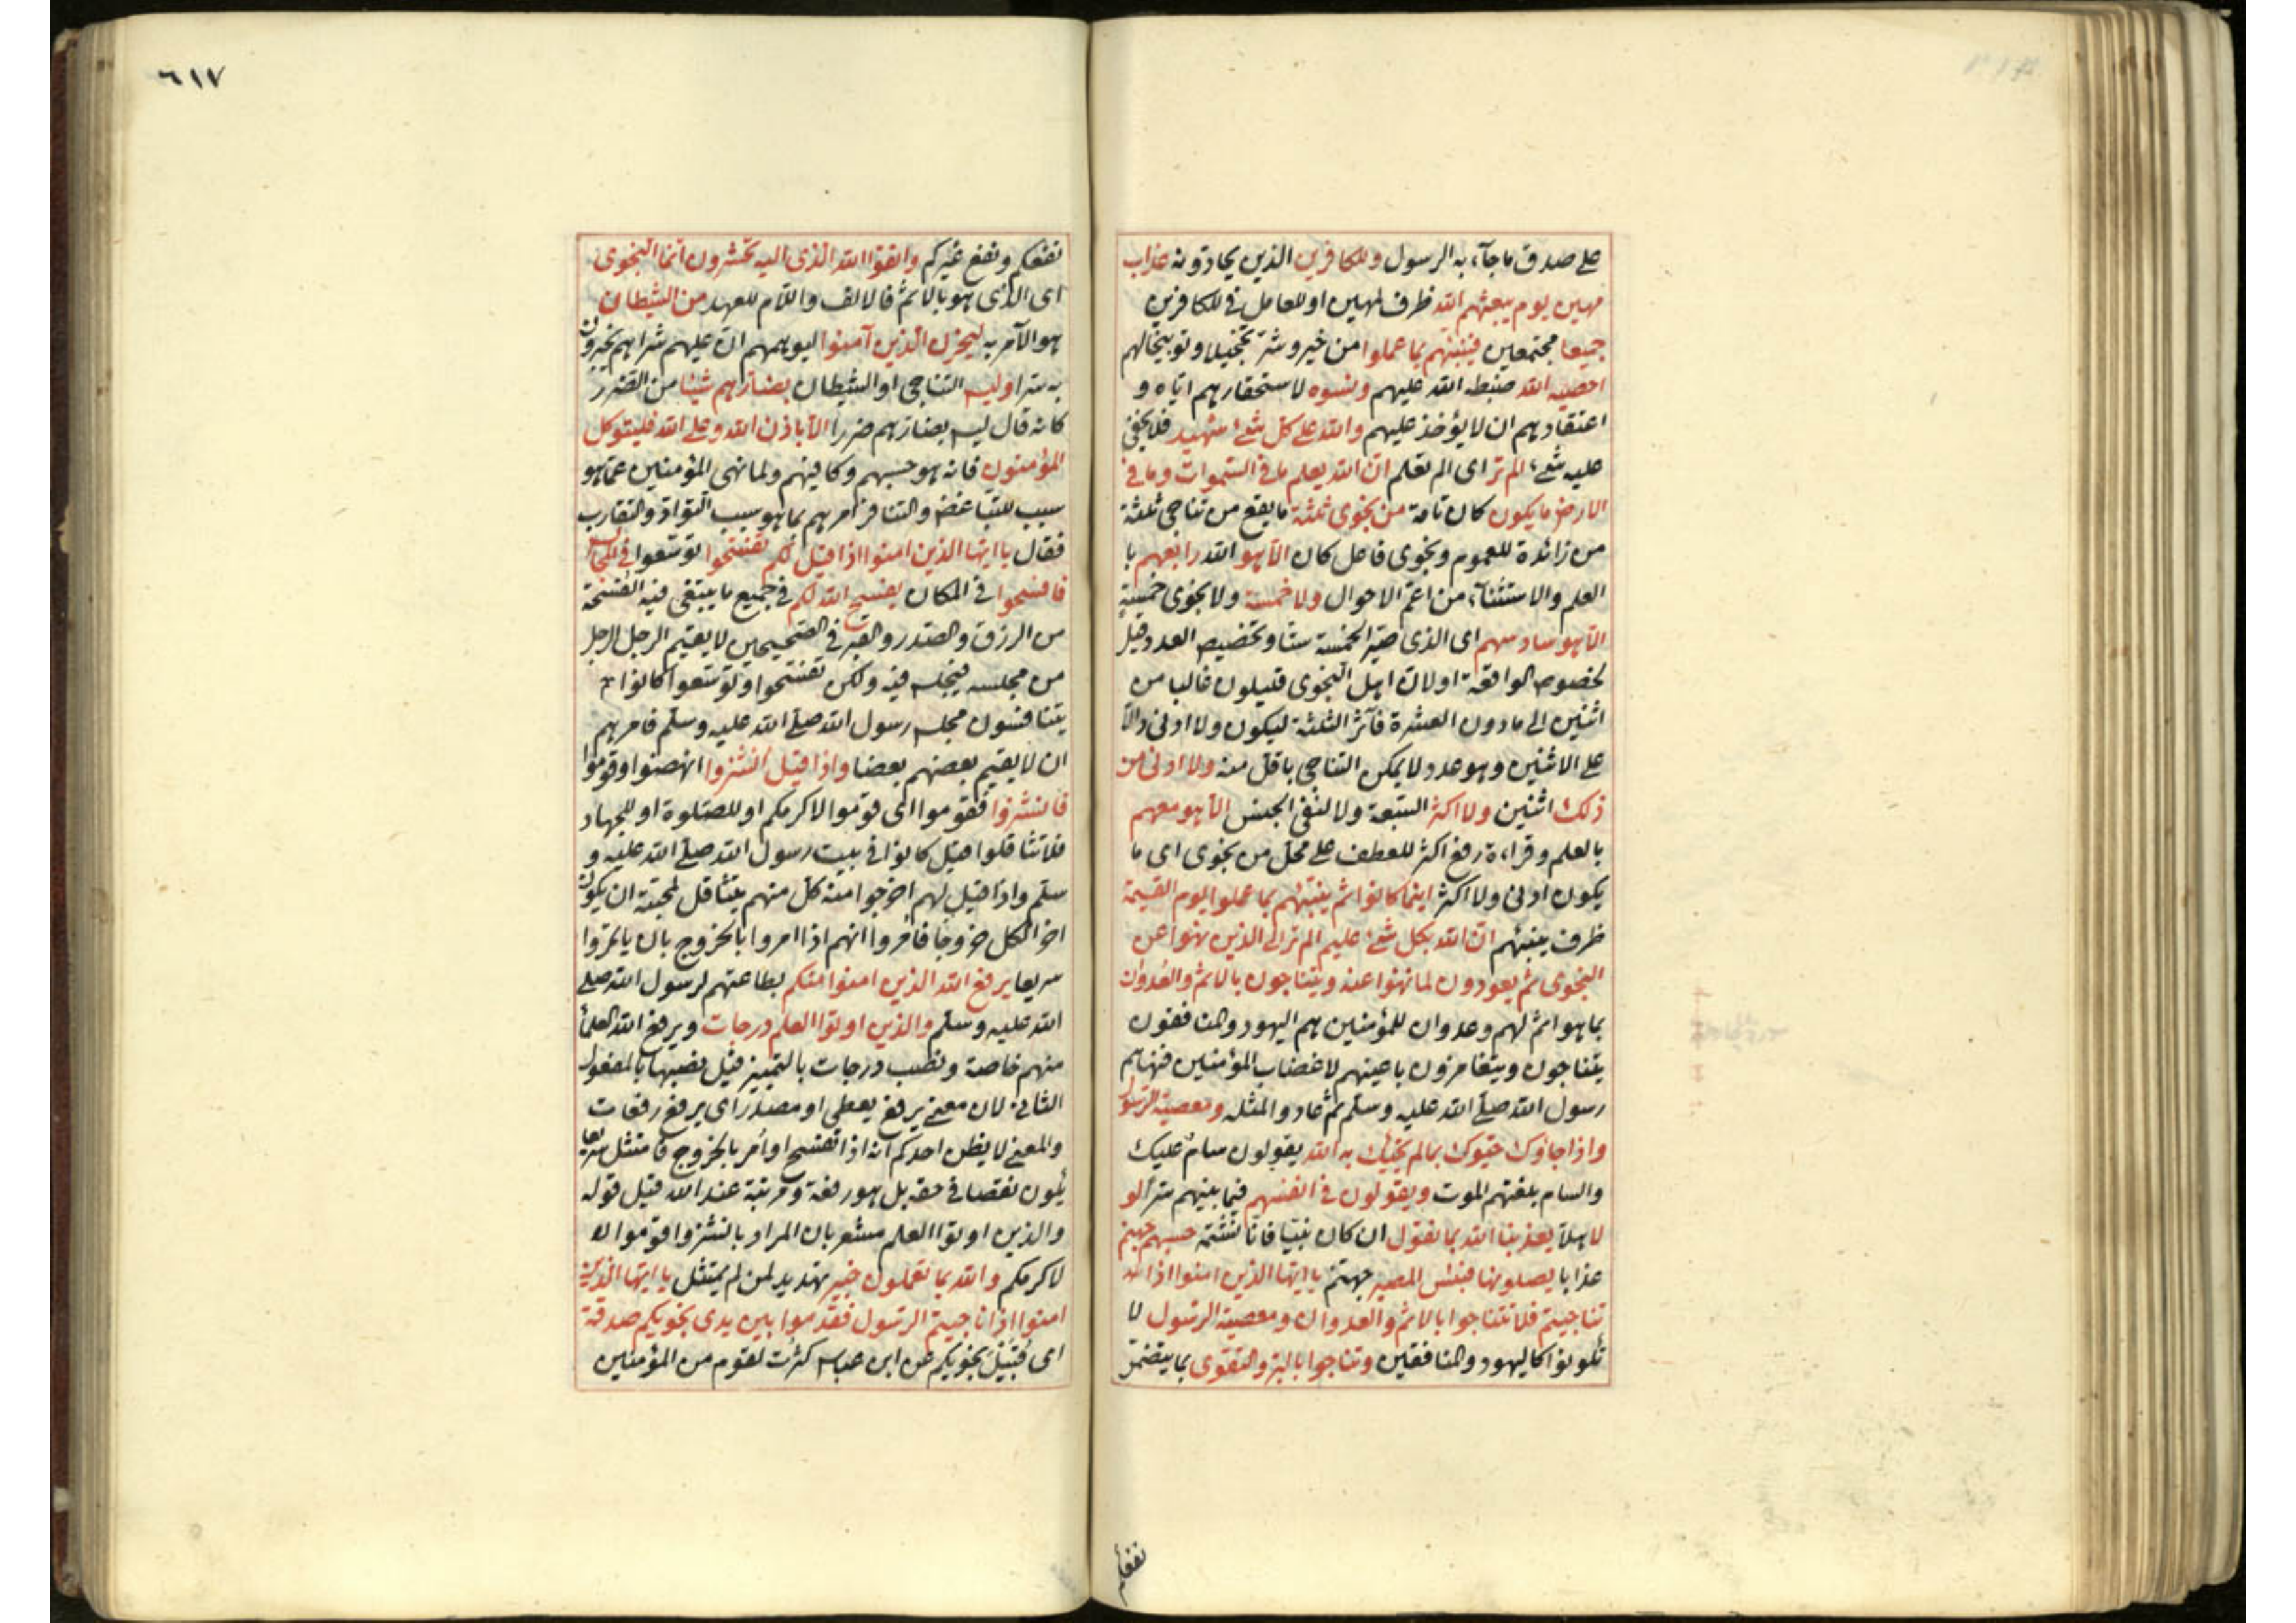 على صدق ما جآء به الرسول وللكافرين الذين يحادونه عذاب
مهين يوم يبعثهم الله ظرف لمهين او للعامل في للكافرين
جميعا مجتمعين فينبئهم بما عملوا من خير وشر تخجيلا وتوبيخا لهم
احصيه الله ضبطه الله عليهم ونسوه لاستحقارهم اياه و
اعتقادهم ان لا يؤخذ عليهم والله على كل شئ شهيد فلا يخفى
عليه شئ الم تر اى الم تعلم ان الله يعلم ما فى السموات وما فى
الارض ما يكون كان تامة من نجوى ثلثة ما يقع من تناجى ثلثة
من زائدة للعموم ونجوى فاعل كان الا هو الله رابعهم با
العلم والاستثنآء من اعم الاحوال ولا خمسة ولا نجوى خمسة
الا هو سادسهم اى الذى صير الخمسة ستا وتخصيص العدد قيل
لخصوص الواقعة او لان اهل النجوى قليلون غالبا من
اثنين الى ما دون العشرة فآثر الثلثة ليكون ولا ادنى دالا
على الاثنين وهو عدد لا يمكن التناجى باقل منه ولا ادنى من
ذلك اثنين ولا اكثر الستة ولا لنفى الجنس الا هو معهم
بالعلم وقراءة رفع اكثر للعطف على محل من نجوى اى ما
يكون ادنى ولا اكثر اينما كانوا ثم ينبئهم بما عملوا يوم القيمة
ظرف ينبئهم ان الله بكل شئ عليم الم تر الى الذين نهوا عن
النجوى ثم يعودون لما نهوا عنه ويتناجون بالاثم والعدوان
بما هو اثم لهم وعدوان للمؤمنين هم اليهود والمنافقون
يتناجون ويتغامزون باعينهم لاغضاب المؤمنين فنهاهم
رسول الله صلى الله عليه وسلم ثم عادوا لمثله ومعصية الرسول
واذا جاؤك حيوك بما لم يحيك به الله يقولون سام عليك
والسام بلغتهم الموت ويقولون فى انفسهم فيما بينهم سرا لو
لا هلا يعذبنا الله بما نقول ان كان نبيا فانا نشتمه حسبهم جهنم
عذابا يصلونها فبئس المصير جهنم يا ايها الذين امنوا اذا
تناجيتم فلا تتناجوا بالاثم والعدوان ومعصية الرسول لا
تكونوا كاليهود والمنافقين وتناجوا بالبر والتقوى بما يتضمن
نفعكم
٦١٧
نفعكم ونفع غيركم واتقوا الله الذى اليه تحشرون انما النجوى
اى الذى هو بالاثم فالالف واللام للعهد من الشيطان
هو الآمر به ليحزن الذين آمنوا ليوهمهم ان عليهم شرا هم يخبرون
به سرا وليس التناجى او الشيطان بضارهم شيئا من الضرر
كانه قال ليس بضارهم ضررا الا باذن الله وعلى الله فليتوكل
المؤمنون فانه هو حسبهم وكافيهم ولما نهى المؤمنين عما هو
سبب للتباغض والتنافر امرهم بما هو سبب التواد والتقارب
فقال يا ايها الذين امنوا اذا قيل لكم تفسحوا توسعوا فى المجالس
فافسحوا فى المكان يفسح الله لكم فى جميع ما يبتغى فيه الفسحة
من الرزق والصدر والقبر فى الصحيحين لا يقيم الرجل الرجل
من مجلسه فيجلس فيه ولكن تفسحوا وتوسعوا كانوا
يتنافسون مجلس رسول الله صلى الله عليه وسلم فامرهم
ان لا يقيم بعضهم بعضا واذا قيل انشزوا انهضوا وقوموا
فانشزوا فقوموا اى قوموا لاكرمكم او للصلوة او للجهاد
فلا تثاقلوا قيل كانوا فى بيت رسول الله صلى الله عليه و
سلم واذا قيل لهم اخرجوا منه كل منهم يتثاقل لمحبته ان يكون
اخر الكل خروجا فامروا انهم اذا امروا بالخروج بان ياتمروا
سريعا يرفع الله الذين امنوا منكم بطاعتهم لرسول الله صلى
الله عليه وسلم والذين اوتوا العلم درجات ويرفع الله العلمآ
منهم خاصة ونصب درجات بالتمييز قيل نصبها بالمفعول
الثانى لان معنى يرفع يعطى او مصدر اى يرفع رفعات
والمعنى لا يظن احدكم انه اذا تفسح او امر بالخروج فامتثل سريعا
يكون نقصا فى حقه بل هو رفعة ومرتبة عند الله قيل قوله
والذين اوتوا العلم مشعر بان المراد بانشزوا قوموا
لاكرمكم والله بما تعملون خبير تهديد لمن لم يمتثل يا ايها الذين
امنوا اذا ناجيتم الرسول فقدموا بين يدى نجويكم صدقة
اى قبيل نجويكم عن ابن عباس كثرت لقوم من المؤمنين